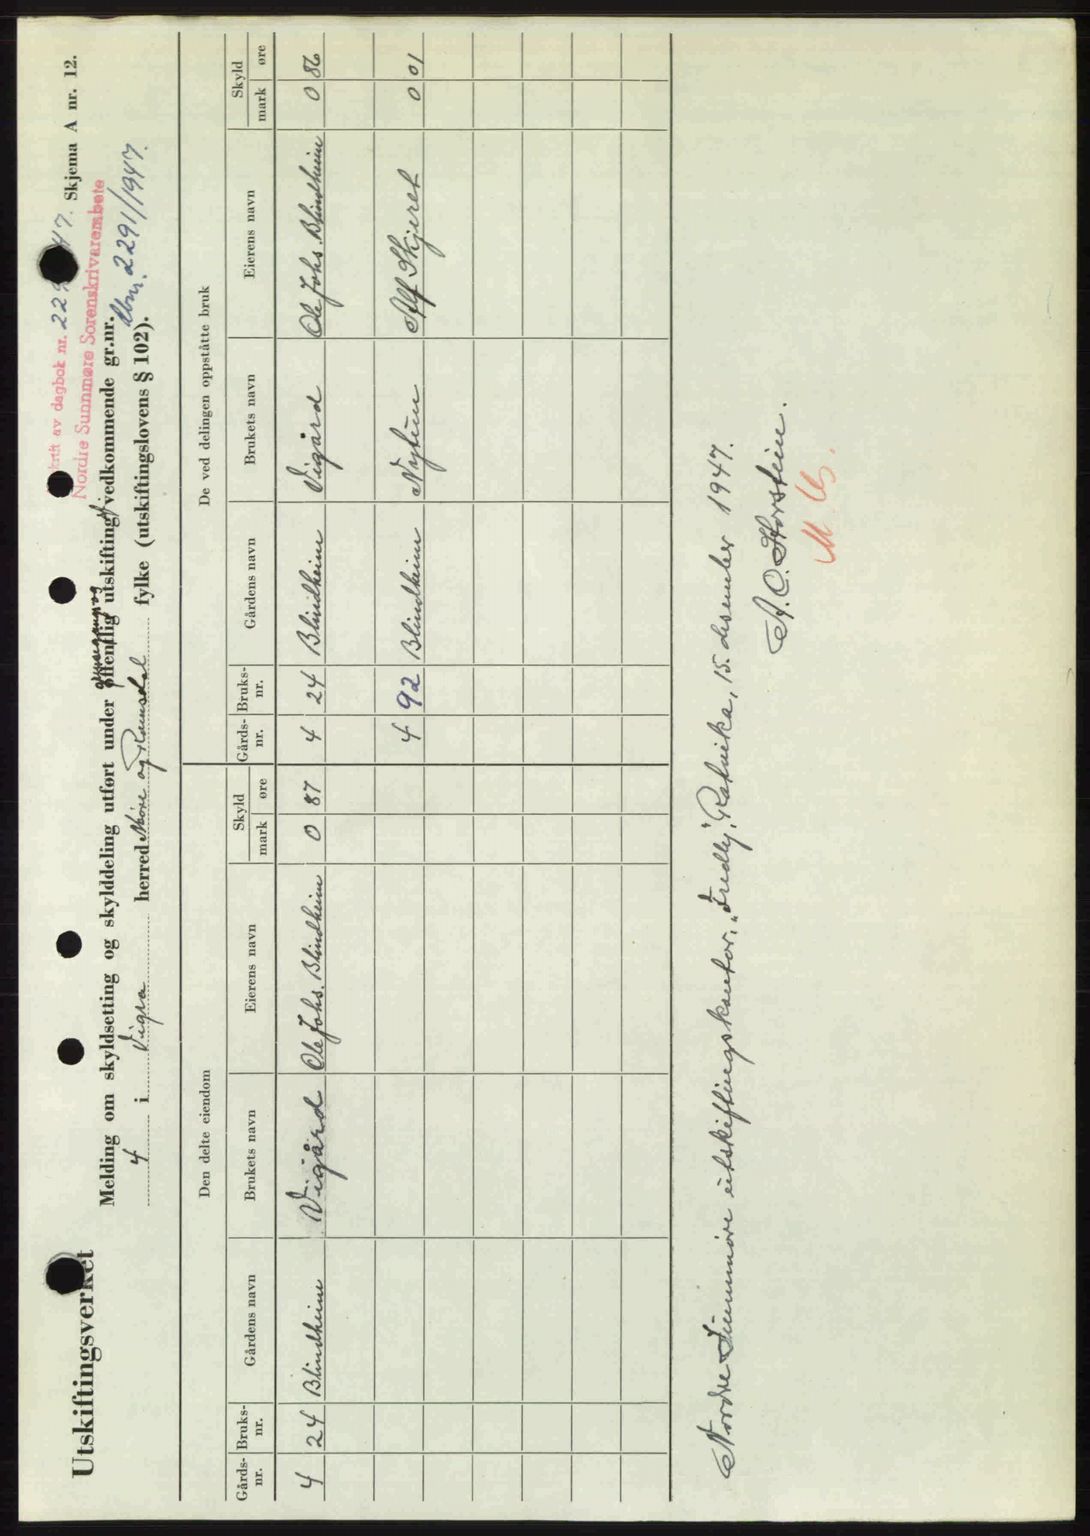 Utskiftingsverket
Skjema A nr. 12.
av dagbok nr. 22 47.
Nordre Sunnmøre Sorenskrivarembete
Melding om skyldsetting og skylddeling utført under offentlig utskifting vedkommende gr.nr.
2291/1947.
4 i Vigra herred Møre og Romsdal fylke (utskiftingslovens § 102).
Den delte eiendom
De ved delingen oppståtte bruk
Gårds-nr. Bruks-nr. Gårdens navn Brukets navn Eierens navn Skyld mark øre Gårds-nr. Bruks-nr. Gårdens navn Brukets navn Eierens navn Skyld mark øre
4 24 Blindheim Vigård Ole Johs. Blindheim 0 87 4 24 Blindheim Vigård Ole Johs. Blindheim 0 86
4 92 Blindheim Nytun Alf Skjeret 0 01
Nordre Sunnmøre utskiftingskontor, „Fredly", Ratvika, 15. desember 1947.
A. O. Horsteim.